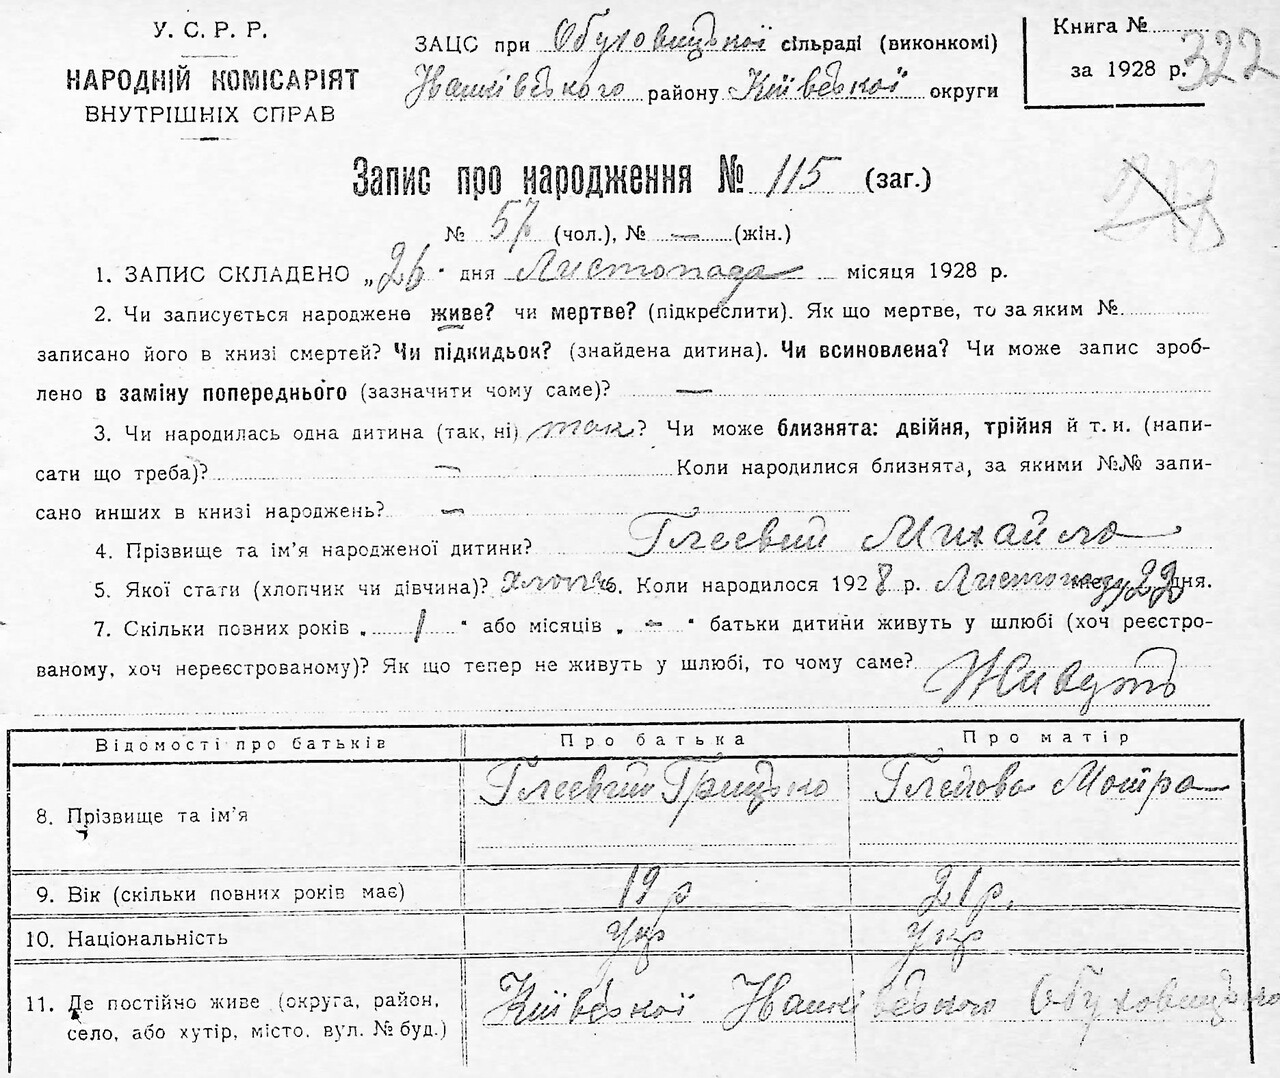 У. С. Р. Р.
НАРОДНІЙ КОМІСАРІЯТ
ВНУТРІШНІХ СПРАВ
ЗАЦС при Обуховицької сільраді (виконкомі)
Іванківського району Київської округи
Книга №
за 1928 р.
322
Запис про народження № 115 (заг.)
№ 57 (чол.), № — (жін.)
1. ЗАПИС СКЛАДЕНО „26" дня Листопада місяця 1928 р.
2. Чи записується народжене живе? чи мертве? (підкреслити). Як що мертве, то за яким №
записано його в книзі смертей? Чи підкидьок? (знайдена дитина). Чи всиновлена? Чи може запис зроб-
лено в заміну попереднього (зазначити чому саме)? —
3. Чи народилась одна дитина (так, ні) так? Чи може близнята: двійня, трійня й т. и. (напи-
сати що треба)? — Коли народилися близнята, за якими №№ запи-
сано инших в книзі народжень? —
4. Прізвище та ім'я народженої дитини? Глєєвий Михайло
5. Якої стати (хлопчик чи дівчина)? хлопець. Коли народилося 1928 р. Листопаду 22 дня.
7. Скільки повних років „ 1 " або місяців „ — " батьки дитини живуть у шлюбі (хоч реєстро-
ваному, хоч нереєстрованому)? Як що тепер не живуть у шлюбі, то чому саме? Живуть
Відомості про батьків Про батька Про матір
8. Прізвище та ім'я Глєєвий Грицько Мотра
9. Вік (скільки повних років має) 19 р 21 р.
10. Національність Укр Укр
11. Де постійно живе (округа, район,
село, або хутір, місто, вул. № буд.) Київської Іванківського